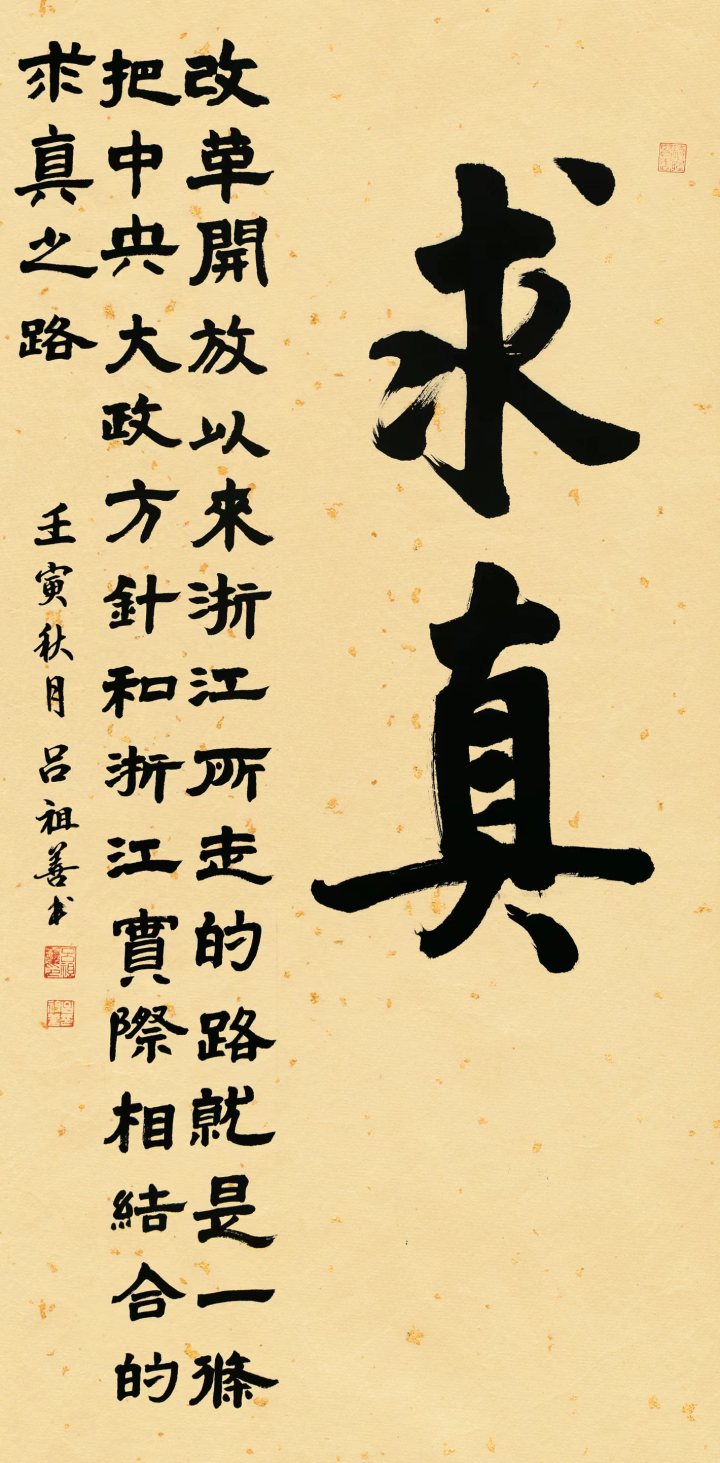 求真
改革開放以來浙江所走的路就是一條
把中央大政方針和浙江實際相結合的
求真之路
壬寅秋月 吕祖善书